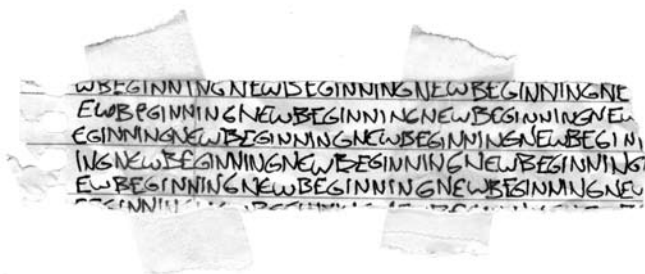 WBEGINNINGNEWBEGINNINGNEWBEGINNINGNE
EWBEGINNINGNEWBEGINNINGNEWBEGINNINGNEW
EGINNINGNEWBEGINNINGNEWBEGINNINGNEWBEGINI
INGNEWBEGINNINGNEWBEGINNINGNEWBEGINNING
EWBEGINNINGNEWBEGINNINGNEWBEGINNINGNEW